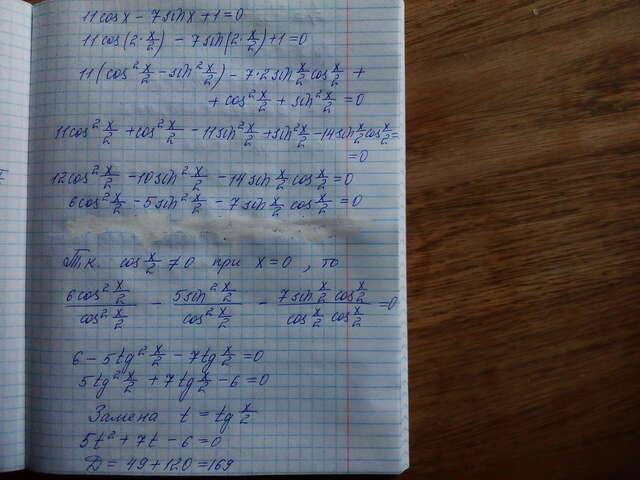 11cosx - 7sinx + 1 = 0
11cos(2·x/2) - 7sin(2·x/2) + 1 = 0
11(cos²x/2 - sin²x/2) - 7·2sin x/2 cos x/2 +
+ cos²x/2 + sin²x/2 = 0
11cos²x/2 + cos²x/2 - 11sin²x/2 + sin²x/2 - 14sin x/2 cos x/2 =
= 0
12cos²x/2 - 10sin²x/2 - 14sin x/2 cos x/2 = 0
6cos²x/2 - 5sin²x/2 - 7sin x/2 cos x/2 = 0
Т.к. cos x/2 ≠ 0 при x = 0, то
6cos²x/2 / cos²x/2 - 5sin²x/2 / cos²x/2 - 7sin x/2 cos x/2 / cos x/2 cos x/2 = 0
6 - 5tg²x/2 - 7tg x/2 = 0
5tg²x/2 + 7tg x/2 - 6 = 0
Замена t = tg x/2
5t² + 7t - 6 = 0
D = 49 + 120 = 169